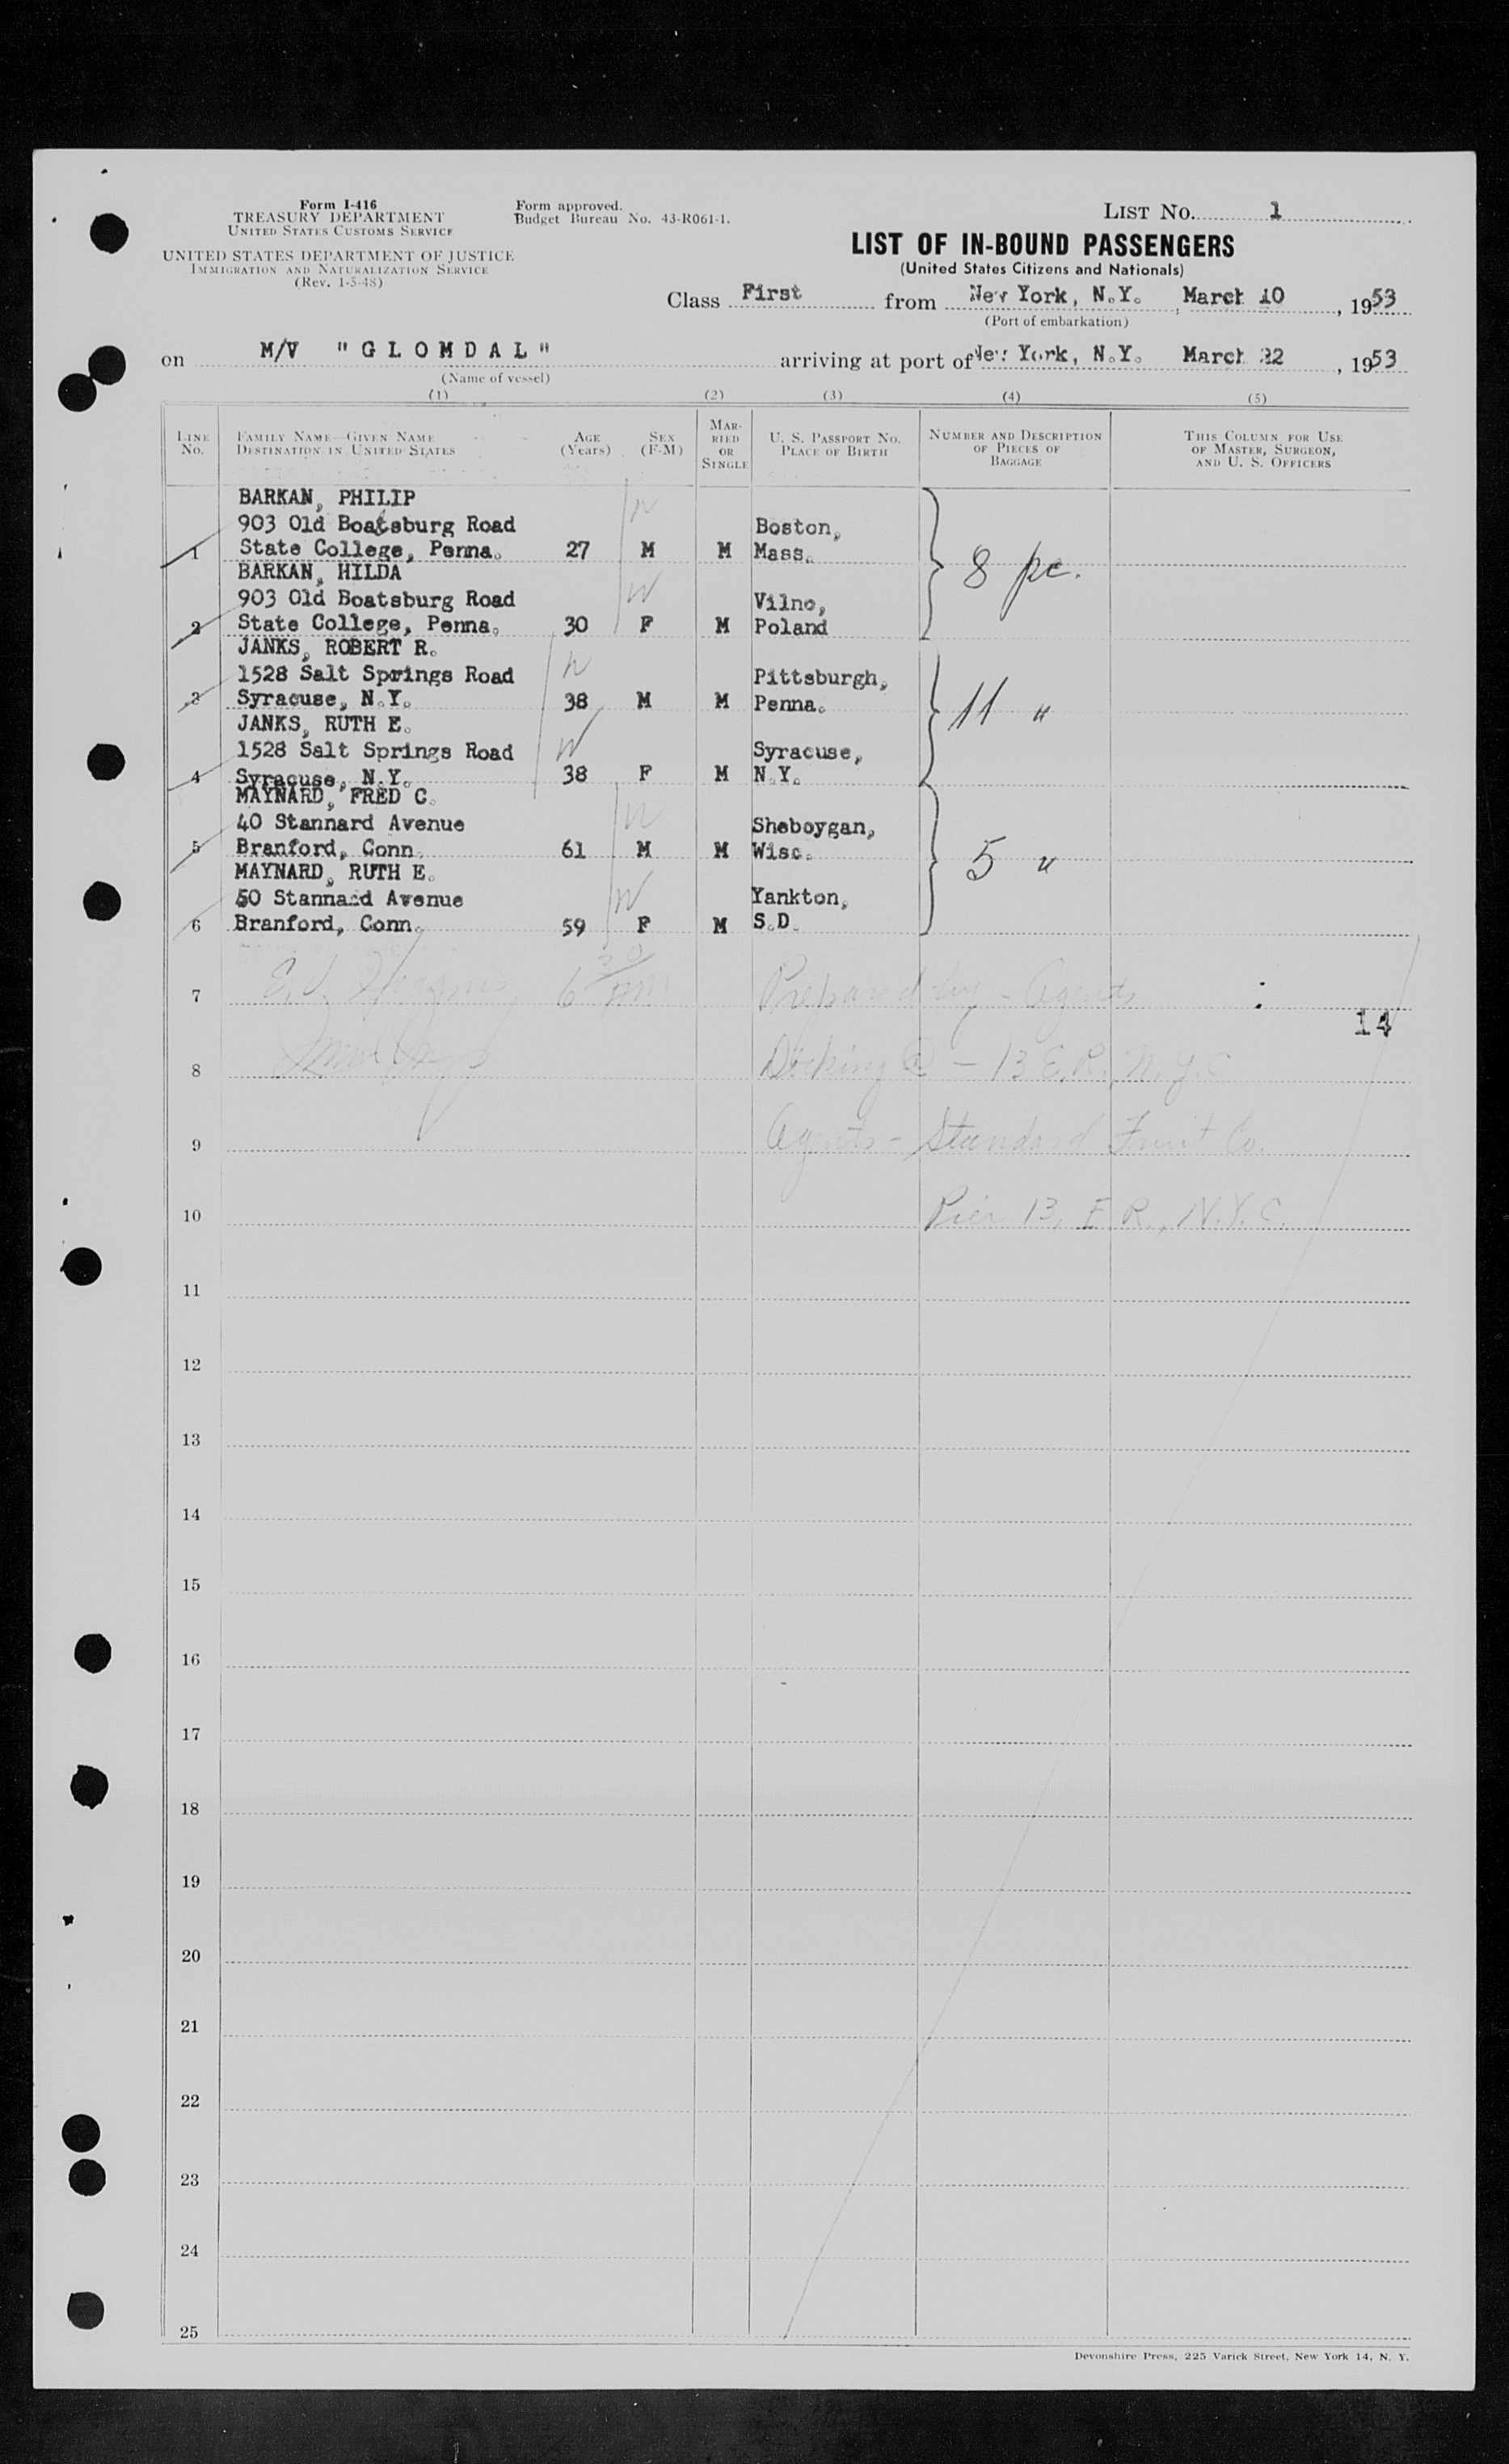 Form I-416
TREASURY DEPARTMENT
UNITED STATES CUSTOMS SERVICE
UNITED STATES DEPARTMENT OF JUSTICE
IMMIGRATION AND NATURALIZATION SERVICE
(Rev. 1-5-48)
Form approved.
Budget Bureau No. 43-R061-1.
LIST NO. 1
LIST OF IN-BOUND PASSENGERS
(United States Citizens and Nationals)
Class First from New York, N.Y., March 10, 1953
(Port of embarkation)
on M/V "GLOMDAL" arriving at port of New York, N.Y. March 22, 1953
(Name of vessel)
(1) (2) (3) (4) (5)
LINE NO.
FAMILY NAME—GIVEN NAME
DESTINATION IN UNITED STATES
AGE (Years)
SEX (F-M)
MARRIED OR SINGLE
U. S. PASSPORT NO.
PLACE OF BIRTH
NUMBER AND DESCRIPTION OF PIECES OF BAGGAGE
THIS COLUMN FOR USE OF MASTER, SURGEON, AND U. S. OFFICERS
BARKAN, PHILIP
903 Old Boatsburg Road Boston,
1 State College, Penna. 27 M M Mass.
8 pc.
BARKAN, HILDA
903 Old Boatsburg Road Vilno,
2 State College, Penna. 30 F M Poland
JANKS, ROBERT R.
1528 Salt Springs Road Pittsburgh,
3 Syracuse, N.Y. 38 M M Penna.
11 "
JANKS, RUTH E.
1528 Salt Springs Road Syracuse,
4 Syracuse, N.Y. 38 F M N.Y.
MAYNARD, FRED C.
40 Stannard Avenue Sheboygan,
5 Branford, Conn. 61 M M Wisc.
5 "
MAYNARD, RUTH E.
50 Stannard Avenue Yankton,
6 Branford, Conn. 59 F M S.D.
7 6 30 pm Prepared by - Agents
14
8 Docking @ - 13 E.R. N.Y.C
9 Agents - Standard Fruit Co.
10 Pier 13, E.R., N.Y.C.
11
12
13
14
15
16
17
18
19
20
21
22
23
24
25
Devonshire Press, 225 Varick Street, New York 14, N. Y.